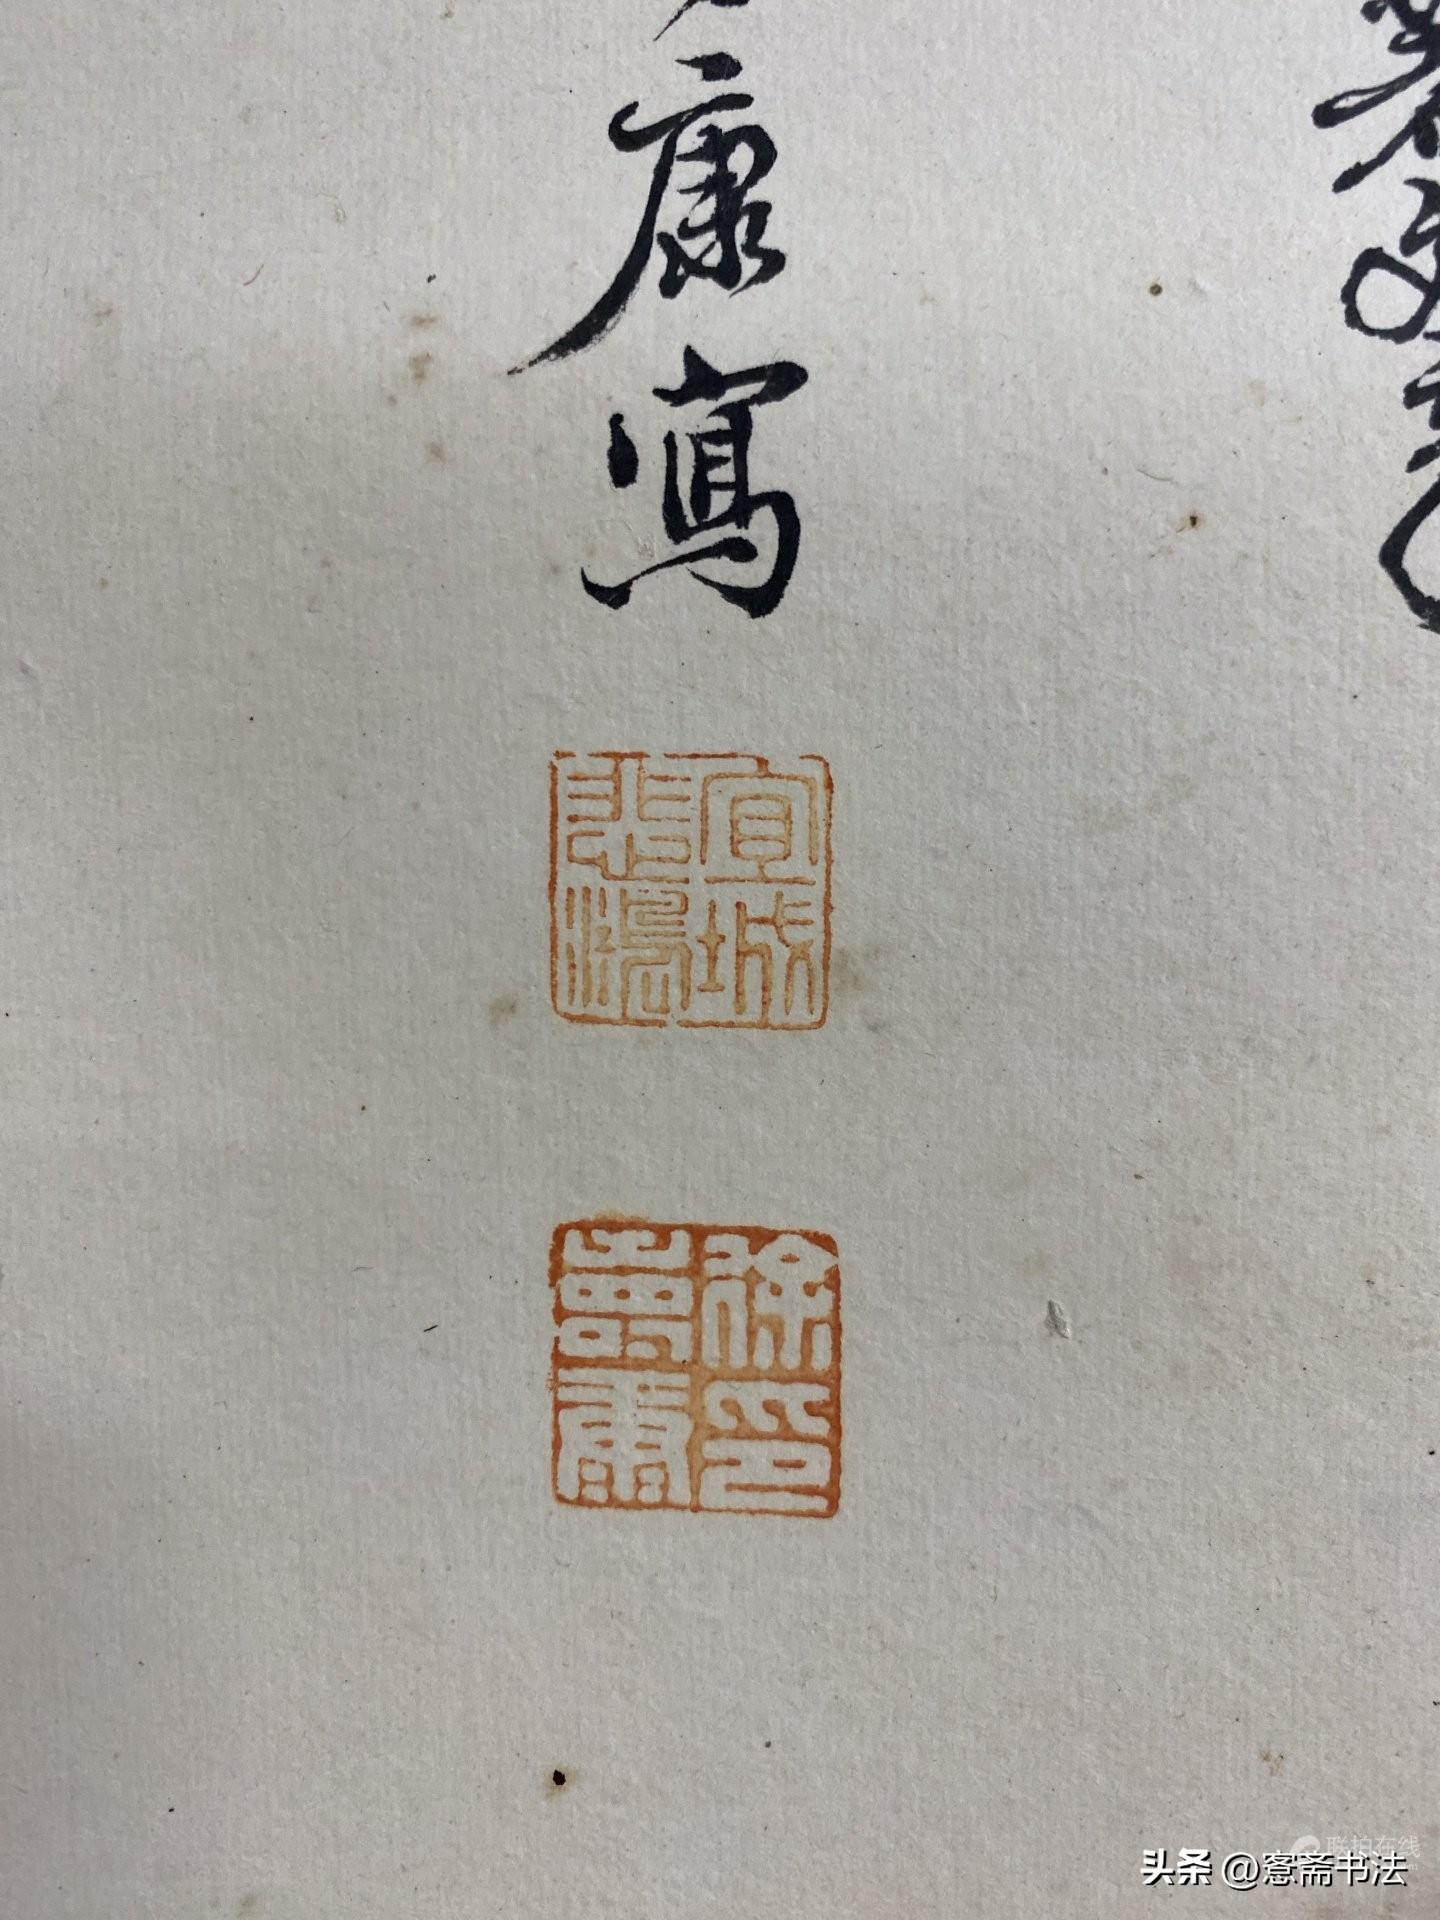 康寫
宜城
悲鴻
徐印
壽康
联拍在线
头条 @愙斋书法